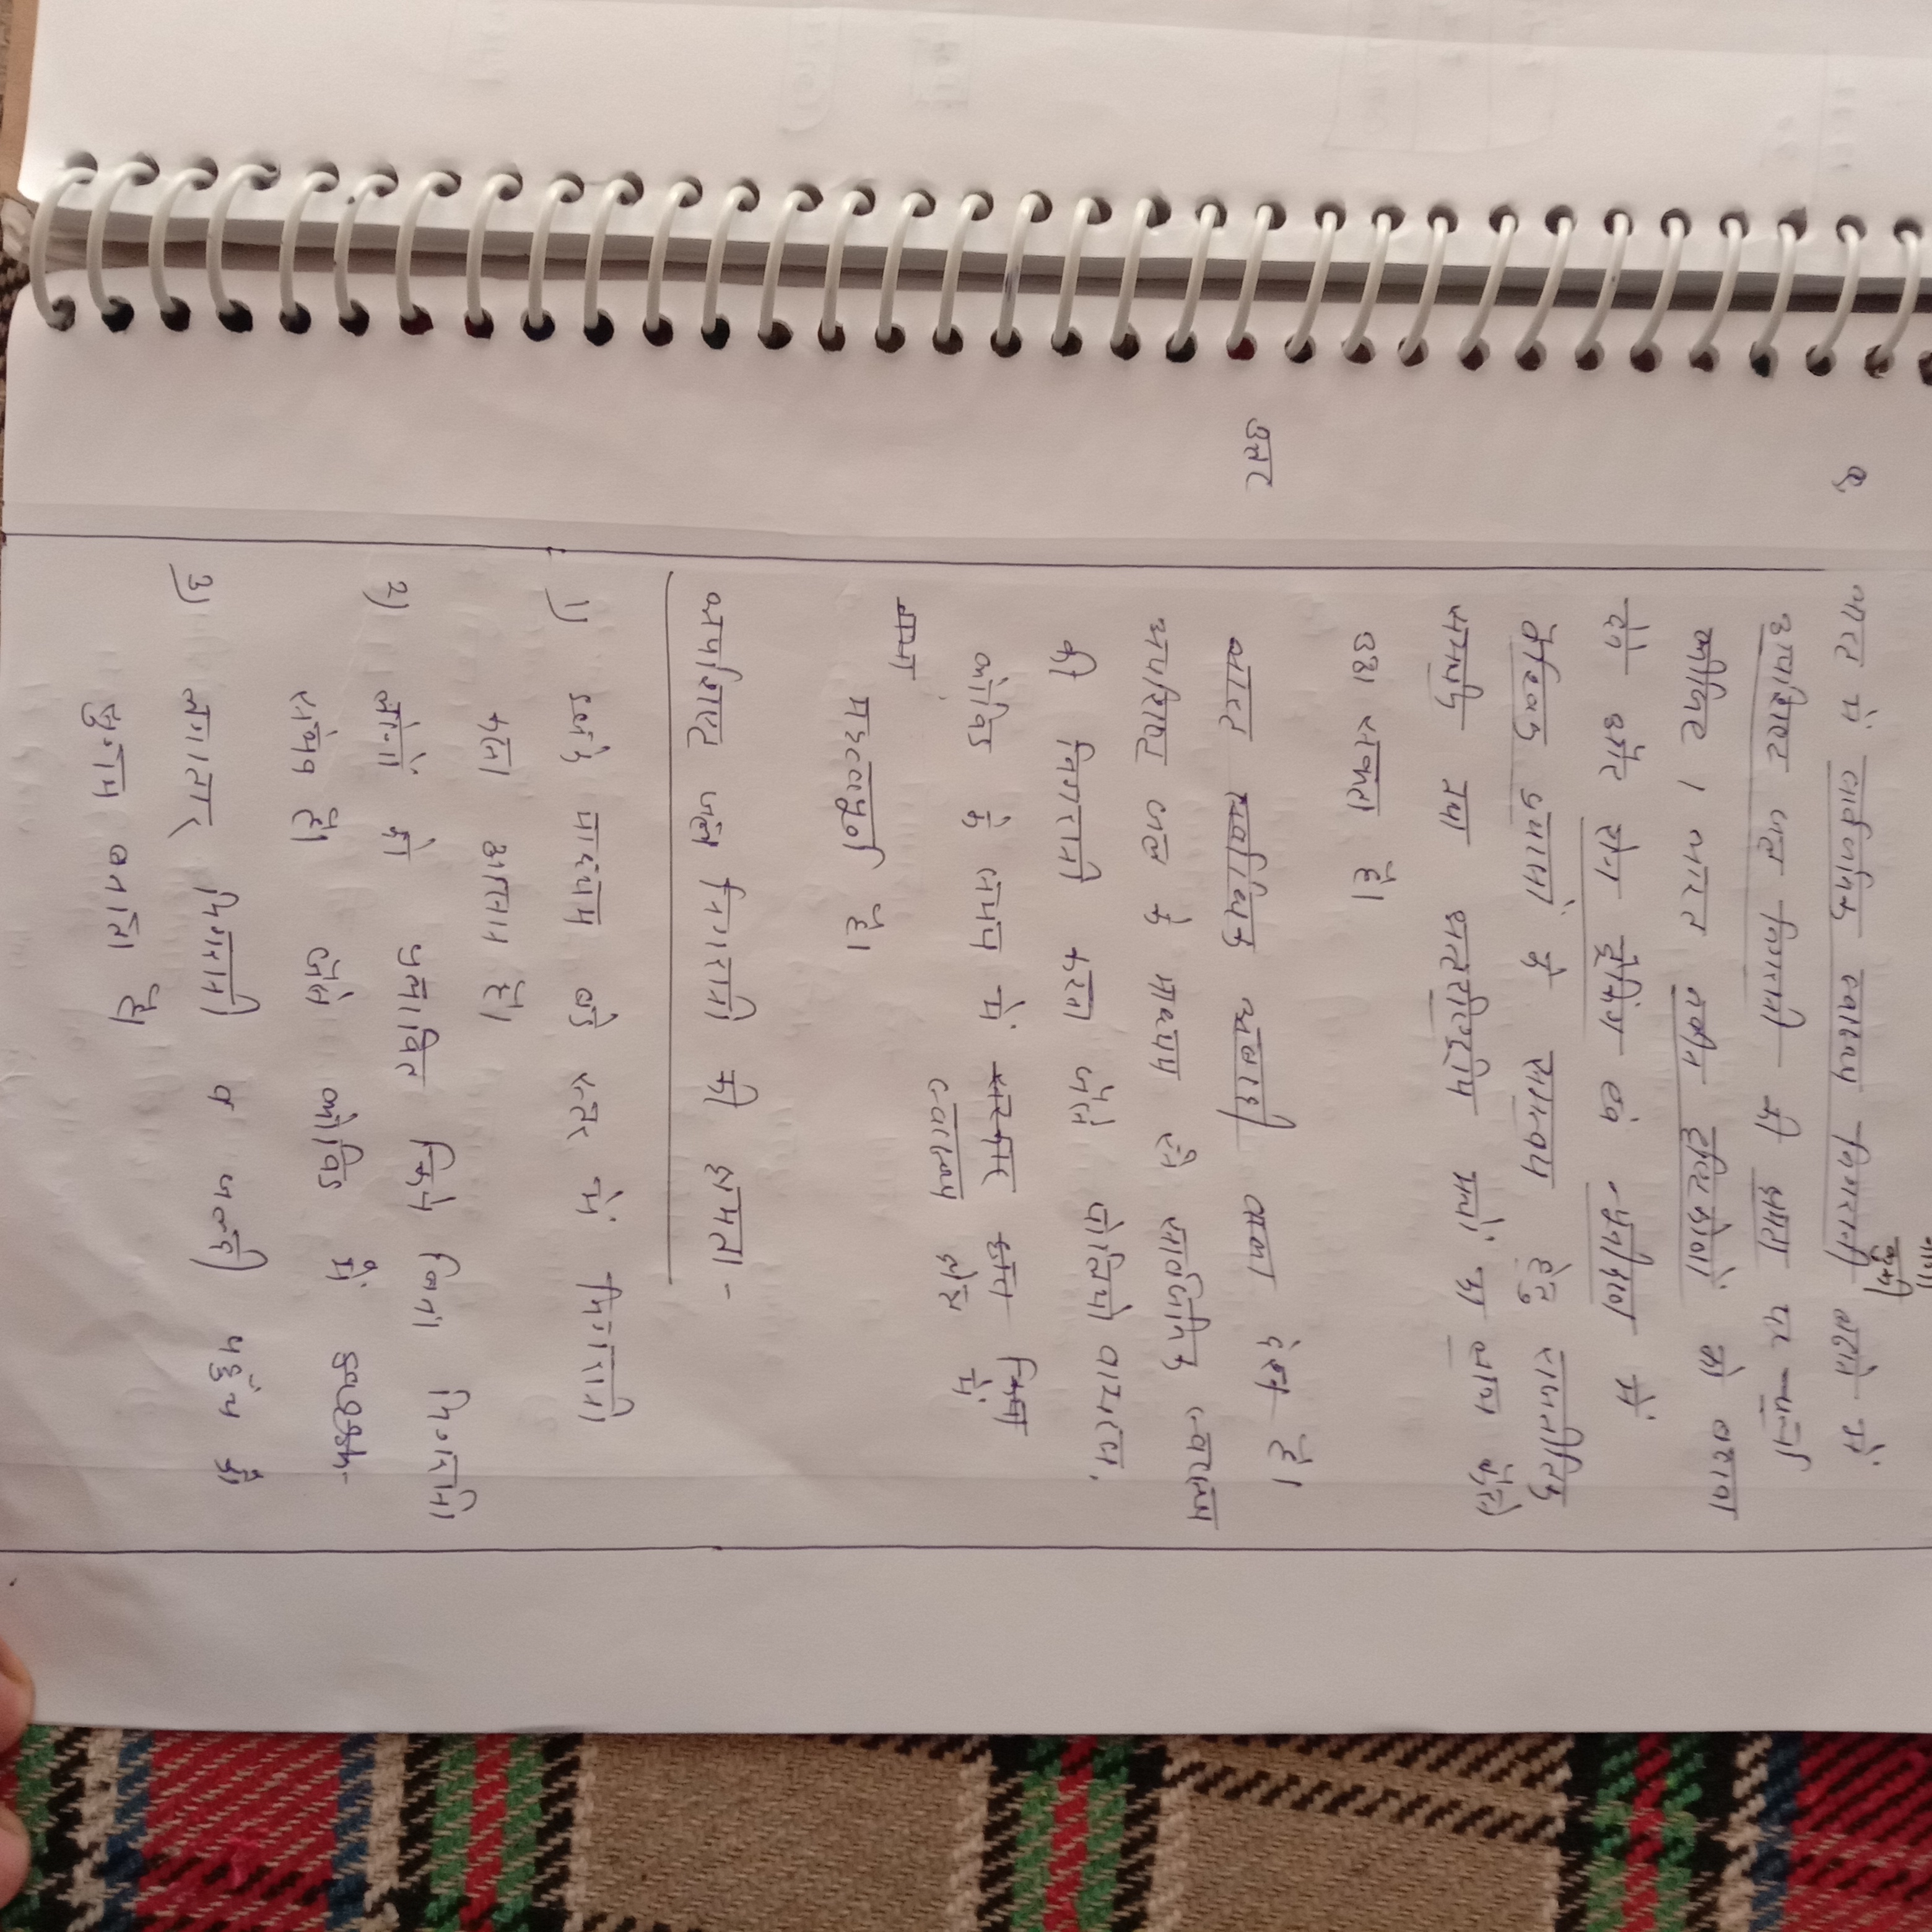 प्र. भारत में सार्वजनिक स्वास्थ्य निगरानी बढ़ाने में
अपशिष्ट जल निगरानी की क्षमता पर चर्चा
कीजिए। भारत नवीन दृष्टिकोणों को बढ़ावा
देने और रोग ट्रैकिंग एवं में
वैश्विक प्रयासों के समन्वय हेतु राजनीतिक
समर्थन तथा अंतर्राष्ट्रीय मंचों का लाभ कैसे
उठा सकता है।
उत्तर भारत सर्वाधिक आबादी वाला देश है।
अपशिष्ट जल के माध्यम से सार्वजनिक स्वास्थ्य
की निगरानी करना जैसे पोलियो वायरस,
कोविड के समय में स्वास्थ्य क्षेत्र में
महत्वपूर्ण है।
अपशिष्ट जल निगरानी की क्षमता -
1) इसके माध्यम बड़े स्तर में निगरानी
करना आसान है।
2) लोगों को प्रभावित किये बिना निगरानी
संभव है। जैसे कोविड में
3) लगातार निगरानी व जल्दी पहुंच को
सुगम बनाता है।